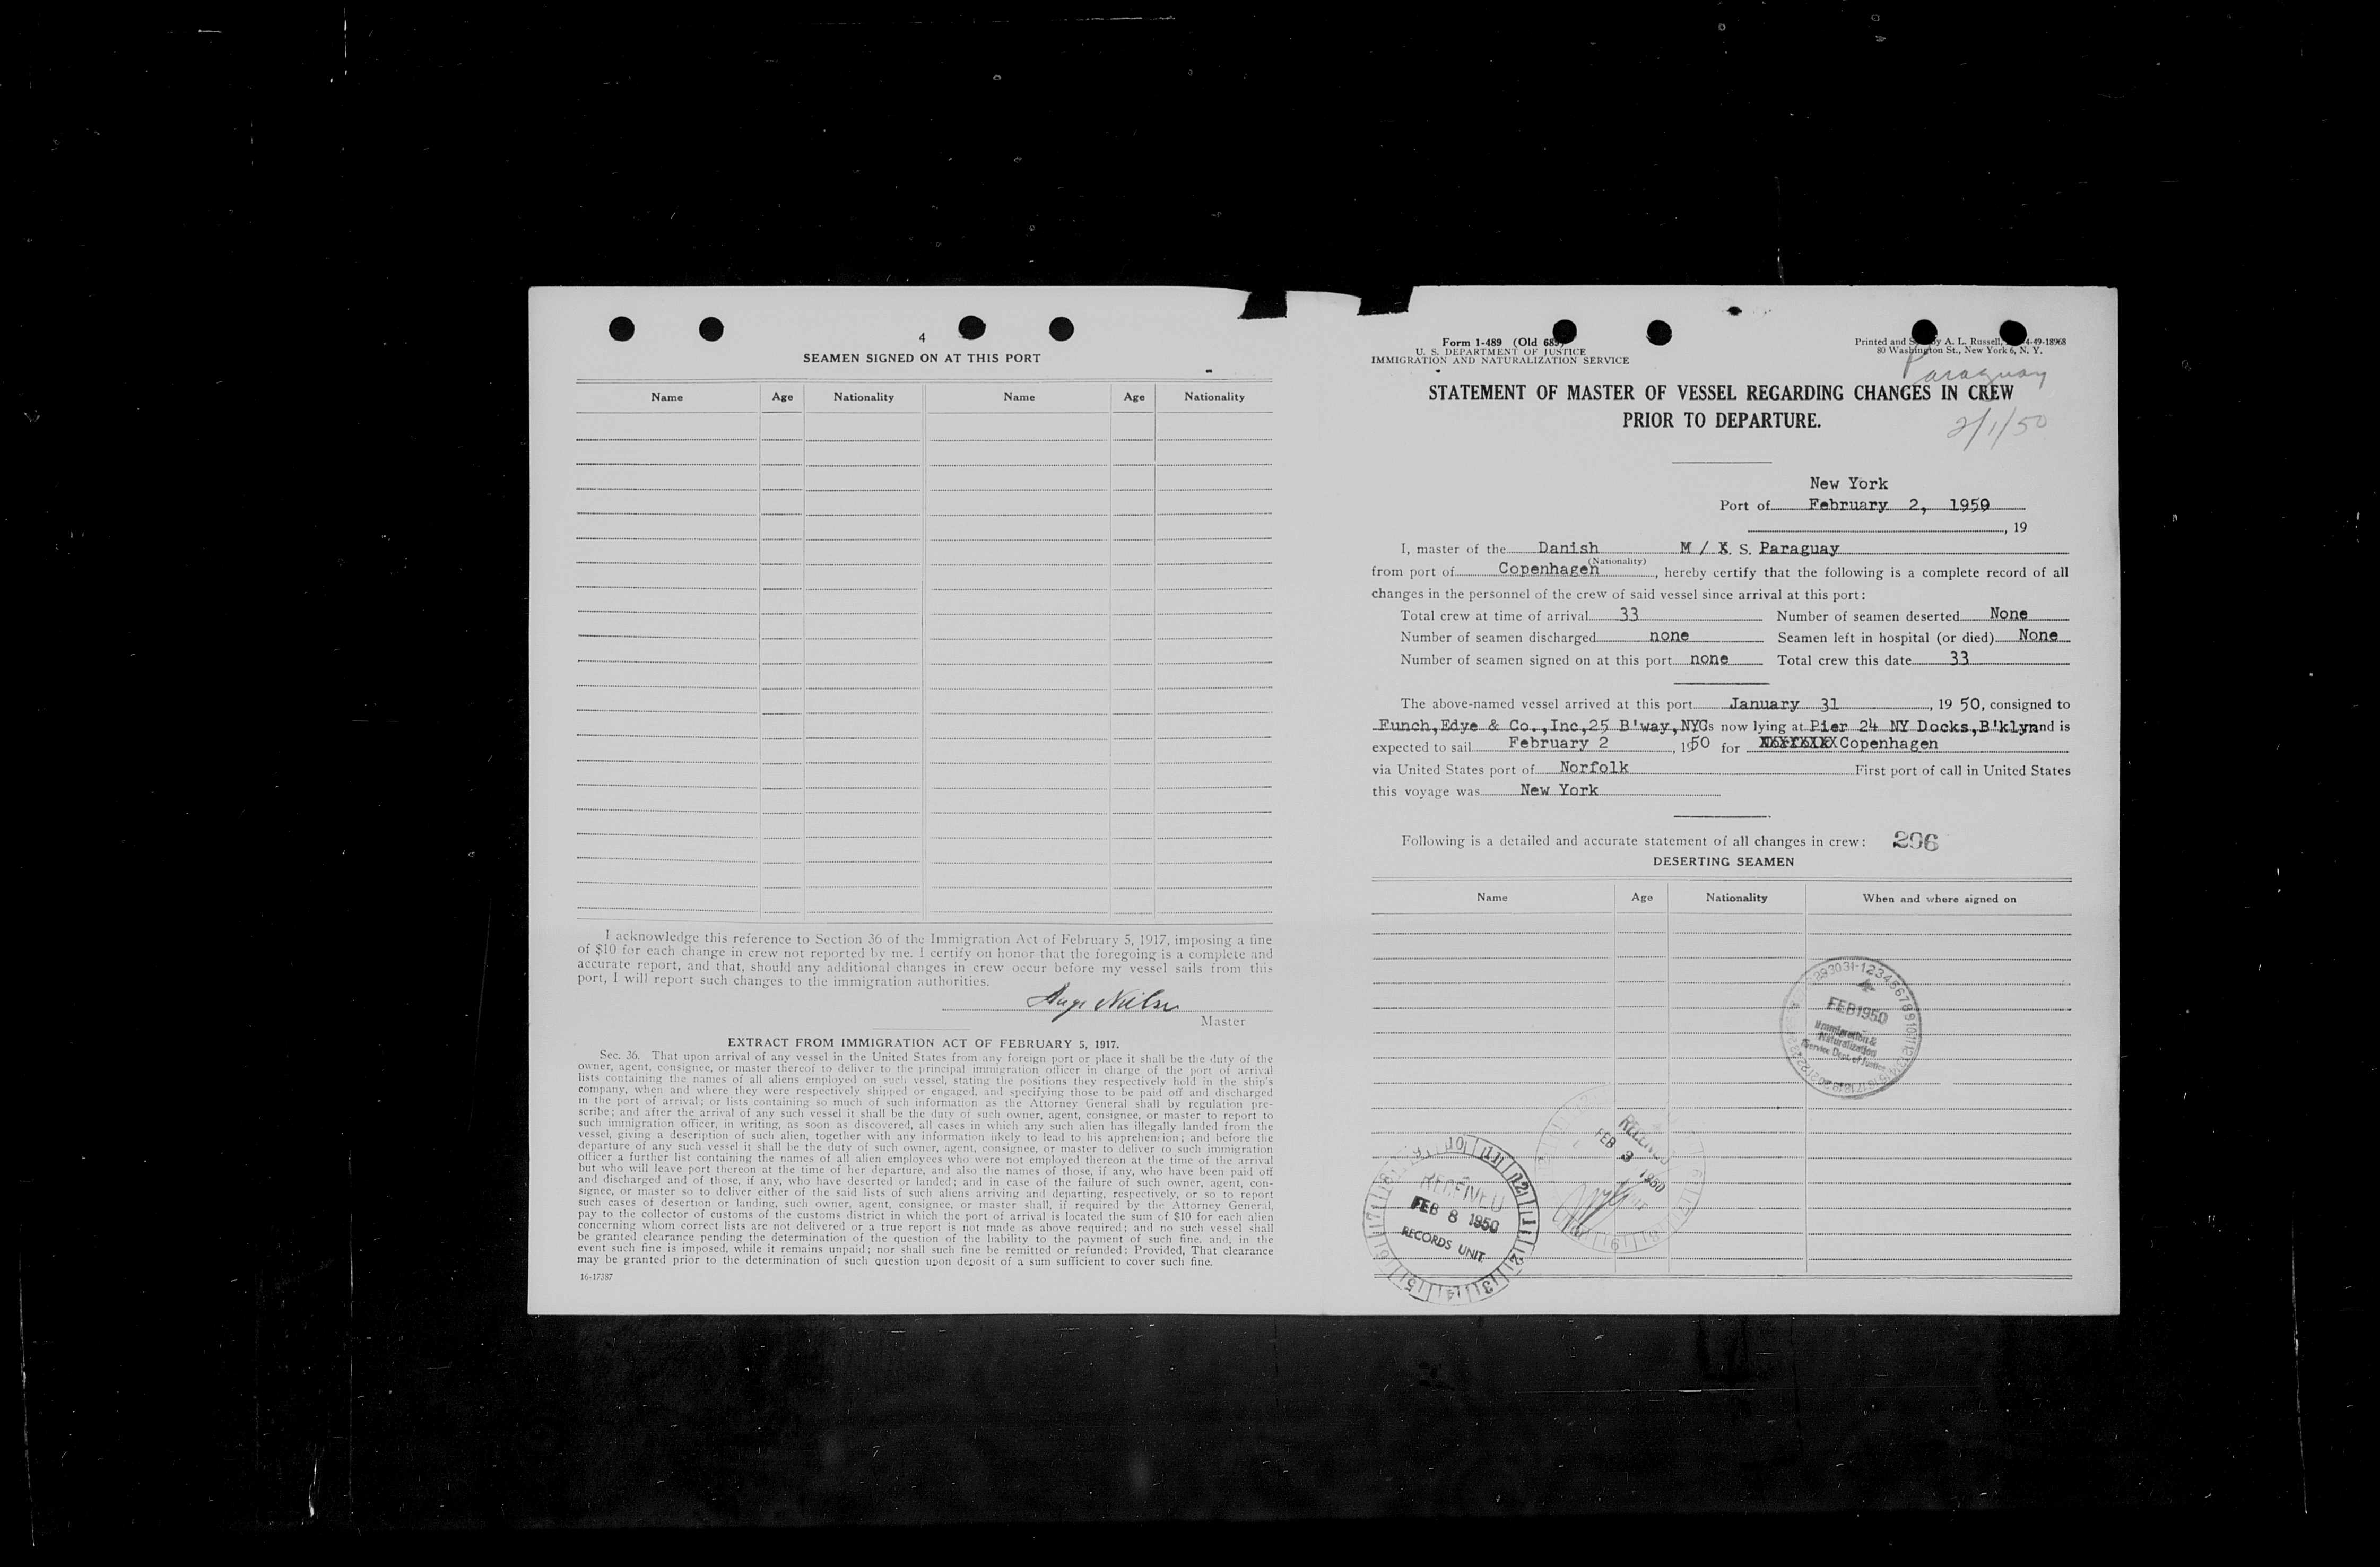 4
SEAMEN SIGNED ON AT THIS PORT
Name Age Nationality Name Age Nationality
I acknowledge this reference to Section 36 of the Immigration Act of February 5, 1917, imposing a fine
of $10 for each change in crew not reported by me. I certify on honor that the foregoing is a complete and
accurate report, and that, should any additional changes in crew occur before my vessel sails from this
port, I will report such changes to the immigration authorities.
Master
EXTRACT FROM IMMIGRATION ACT OF FEBRUARY 5, 1917.
Sec. 36. That upon arrival of any vessel in the United States from any foreign port or place it shall be the duty of the
owner, agent, consignee, or master thereof to deliver to the principal immigration officer in charge of the port of arrival
lists containing the names of all aliens employed on such vessel, stating the positions they respectively hold in the ship's
company, when and where they were respectively shipped or engaged, and specifying those to be paid off and discharged
in the port of arrival; or lists containing so much of such information as the Attorney General shall by regulation pre-
scribe; and after the arrival of any such vessel it shall be the duty of such owner, agent, consignee, or master to report to
such immigration officer, in writing, as soon as discovered, all cases in which any such alien has illegally landed from the
vessel, giving a description of such alien, together with any information likely to lead to his apprehension; and before the
departure of any such vessel it shall be the duty of such owner, agent, consignee, or master to deliver to such immigration
officer a further list containing the names of all alien employees who were not employed thereon at the time of the arrival
but who will leave port thereon at the time of her departure, and also the names of those, if any, who have been paid off
and discharged and of those, if any, who have deserted or landed; and in case of the failure of such owner, agent, con-
signee, or master so to deliver either of the said lists of such aliens arriving and departing, respectively, or so to report
such cases of desertion or landing, such owner, agent, consignee, or master shall, if required by the Attorney General,
pay to the collector of customs of the customs district in which the port of arrival is located the sum of $10 for each alien
concerning whom correct lists are not delivered or a true report is not made as above required; and no such vessel shall
be granted clearance pending the determination of the question of the liability to the payment of such fine, and, in the
event such fine is imposed, while it remains unpaid; nor shall such fine be remitted or refunded: Provided, That clearance
may be granted prior to the determination of such question upon deposit of a sum sufficient to cover such fine.
16-17387
Form 1-489 (Old 689)
U. S. DEPARTMENT OF JUSTICE
IMMIGRATION AND NATURALIZATION SERVICE
Printed and by A. L. Russell, 4-49-18968
80 Washington St., New York 6, N. Y.
Paraguay
STATEMENT OF MASTER OF VESSEL REGARDING CHANGES IN CREW
PRIOR TO DEPARTURE.
2/1/50
New York
Port of February 2, 1950
, 19
I, master of the Danish M / X. S. Paraguay
(Nationality)
from port of Copenhagen, hereby certify that the following is a complete record of all
changes in the personnel of the crew of said vessel since arrival at this port:
Total crew at time of arrival 33 Number of seamen deserted None
Number of seamen discharged none Seamen left in hospital (or died) None
Number of seamen signed on at this port none Total crew this date 33
The above-named vessel arrived at this port January 31, 19 50, consigned to
Funch,Edye & Co.,Inc,25 B'way,NYC s now lying at Pier 24 NY Docks,B'klyn and is
expected to sail February 2, 1950 for Copenhagen
via United States port of Norfolk First port of call in United States
this voyage was New York
Following is a detailed and accurate statement of all changes in crew: 296
DESERTING SEAMEN
Name Age Nationality When and where signed on
FEB 1950
Immigration &
Naturalization
Service Dept. of Justice
RECEIVED
FEB 3 1950
RECEIVED
FEB 8 1950
RECORDS UNIT